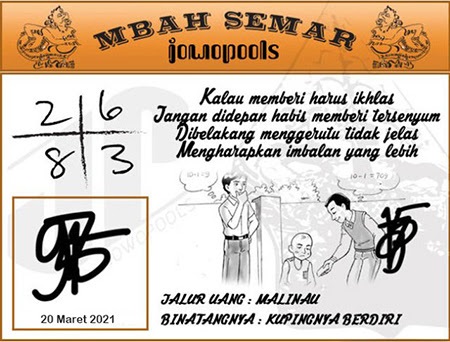 MBAH SEMAR
jowopools
2 6
8 3
Kalau memberi harus ikhlas
Jangan didepan habis memberi tersenyum
Dibelakang menggerutu tidak jelas
Mengharapkan imbalan yang lebih
20 Maret 2021
JALUR UANG : MALINAU
BINATANGNYA : KUPINGNYA BERDIRI